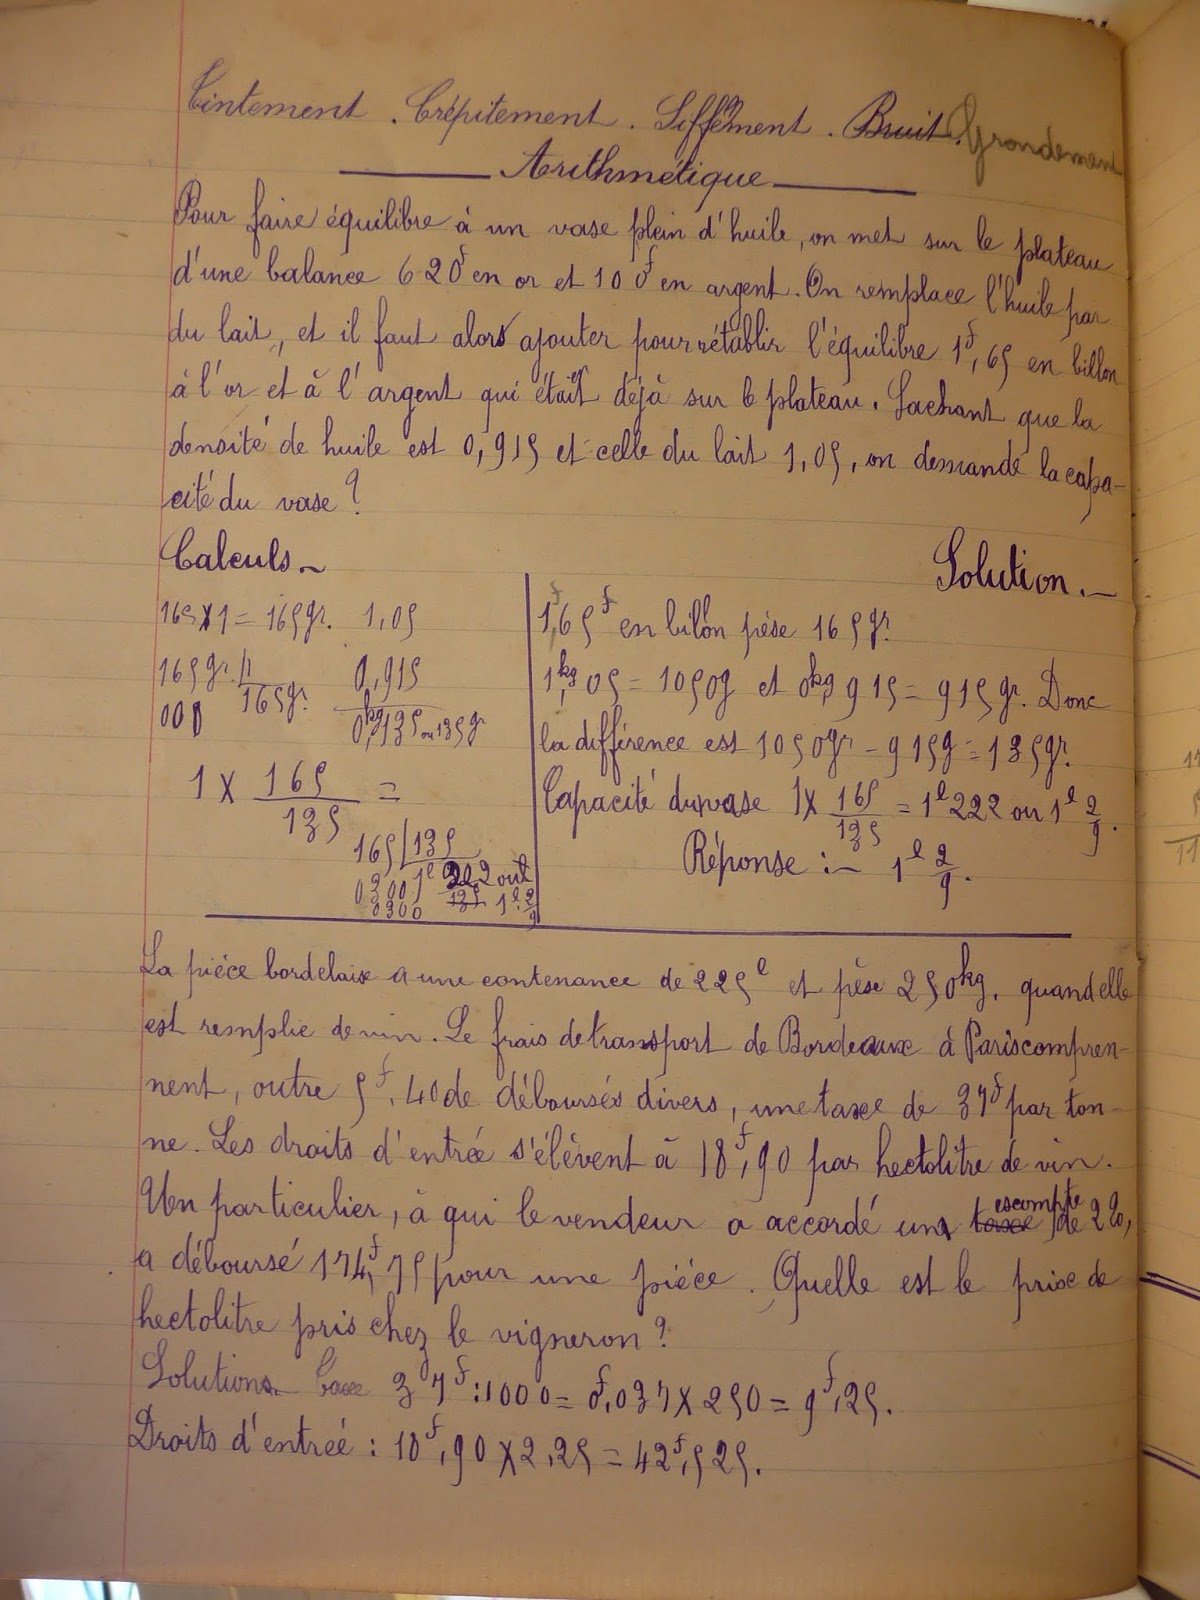 Tintement . Crépitement . Sifflement . Bruit. Grondement
Arithmétique
Pour faire équilibre à un vase plein d'huile, on met sur le plateau
d'une balance 620f en or et 100f en argent. On remplace l'huile par
du lait, et il faut alors ajouter pour rétablir l'équilibre 1f,65 en billon
à l'or et à l'argent qui était déjà sur le plateau. Sachant que la
densité de huile est 0,915 et celle du lait 1,05, on demande la capa-
cité du vase ?
Calculs Solution.
165 x 1 = 165gr. 1,05
165gr. 1
0,915
000 165gr.
0kg,135 ou 135gr
1 x 165/135 =
165 135
0300 1l 222 ou
0300 135 1l 2/9
1,65f en bilon pèse 165gr
1kg,05 = 1050g et 0kg,915 = 915gr. Donc
la différence est 1050gr - 915g = 135gr.
Capacité du vase 1 x 165/135 = 1l222 ou 1l 2/9.
Réponse : 1l 2/9.
La pièce bordelaise a une contenance de 225l et pèse 250kg. quand elle
est remplie de vin. Le frais de transport de Bordeaux à Paris compren-
nent, outre 5f,40 de déboursés divers, une taxe de 37f par ton-
ne. Les droits d'entrée s'élèvent à 18f,90 par hectolitre de vin.
Un particulier, à qui le vendeur a accordé un taxe escompte de 2%,
a déboursé 174f,75 pour une pièce. Quelle est le prix de
hectolitre pris chez le vigneron ?
Solution Taxe 37f : 1000 = 0f,037 x 250 = 9f,25.
Droits d'entreé : 18f,90 x 2,25 = 42f,525.